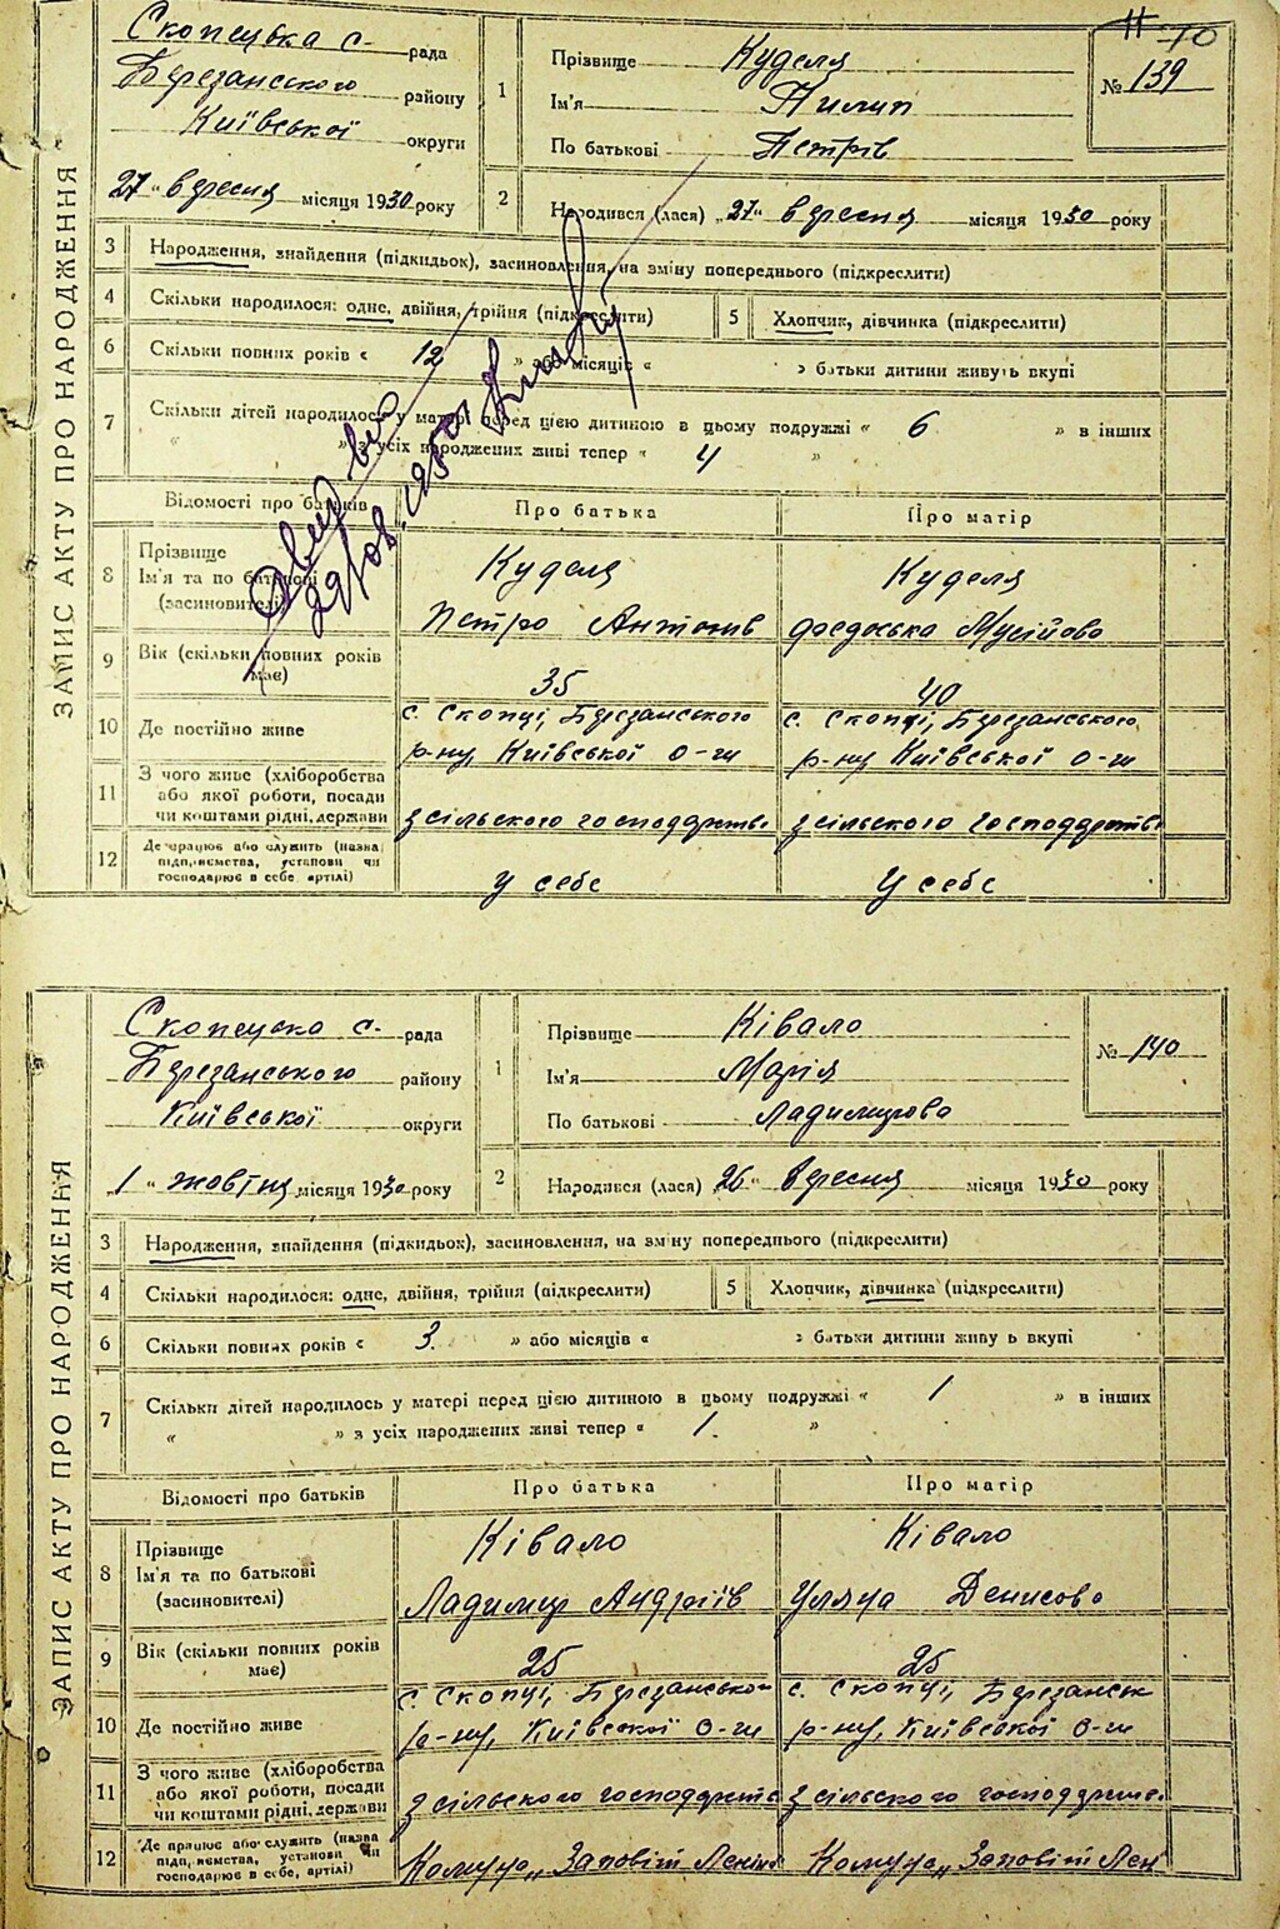 11 10
Скопецька с. рада
Березанського району
Київської округи
"27" вересня місяця 1930 року
1
Прізвище Куделя
Ім'я Пилип
По батькові Петрів
№ 139
2 Народився (лася) "27" вересня місяця 1930 року
ЗАПИС АКТУ ПРО НАРОДЖЕННЯ
3 Народження, знайдення (підкидьок), засиновлення, на зміну попереднього (підкреслити)
4 Скільки народилося: одне, двійня, трійня (підкреслити) 5 Хлопчик, дівчинка (підкреслити)
6 Скільки повних років « 12 » або місяців « » батьки дитини живуть вкупі
7 Скільки дітей народилось у матері перед цією дитиною в цьому подружжі « 6 » в інших
« » з усіх народжених живі тепер « 4 »
Відомості про батьків Про батька Про матір
8 Прізвище Ім'я та по батькові (засиновителі)
Куделя Куделя
Петро Антонів Федоська Мусійова
9 Вік (скільки повних років має) 35 40
10 Де постійно живе
с. Скопці, Березанського с. Скопці, Березанського
р-ну, Київської о-ги р-ну Київської о-ги
11 З чого живе (хліборобства або якої роботи, посади чи коштами рідні, держави
з сільського господарств. з сільского господарств.
12 Де працює або служить (назва підприємства, установи чи господарює в себе, артілі)
у себе у себе
Скопецька с. рада
Березанського району
Київської округи
"1" жовтня місяця 1930 року
1
Прізвище Ківало
Ім'я Марія
По батькові Ладимирова
№ 140
2 Народився (лася) "26" вересня місяця 1930 року
ЗАПИС АКТУ ПРО НАРОДЖЕННЯ
3 Народження, знайдення (підкидьок), засиновлення, на зміну попереднього (підкреслити)
4 Скільки народилося: одне, двійня, трійня (підкреслити) 5 Хлопчик, дівчинка (підкреслити)
6 Скільки повних років « 3. » або місяців « » батьки дитини живу ь вкупі
7 Скільки дітей народилось у матері перед цією дитиною в цьому подружжі « 1 » в інших
« » з усіх народжених живі тепер « 1. »
Відомості про батьків Про батька Про матір
8 Прізвище Ім'я та по батькові (засиновителі)
Ківало Ківало
Ладимир Андріїв Уляна Денисова
9 Вік (скільки повних років має) 25 25
10 Де постійно живе
с. Скопці, Березанськог с. Скопці, Березанськ
р-ну, Київської о-ги р-ну, Київської о-ги
11 З чого живе (хліборобства або якої роботи, посади чи коштами рідні, держави
з сільского господарств з сільского господарств.
12 Де працює або служить (назва підприємства, установи чи господарює в себе, артілі)
Комуна „Заповіт Леніна Комуна „Заповіт Лен